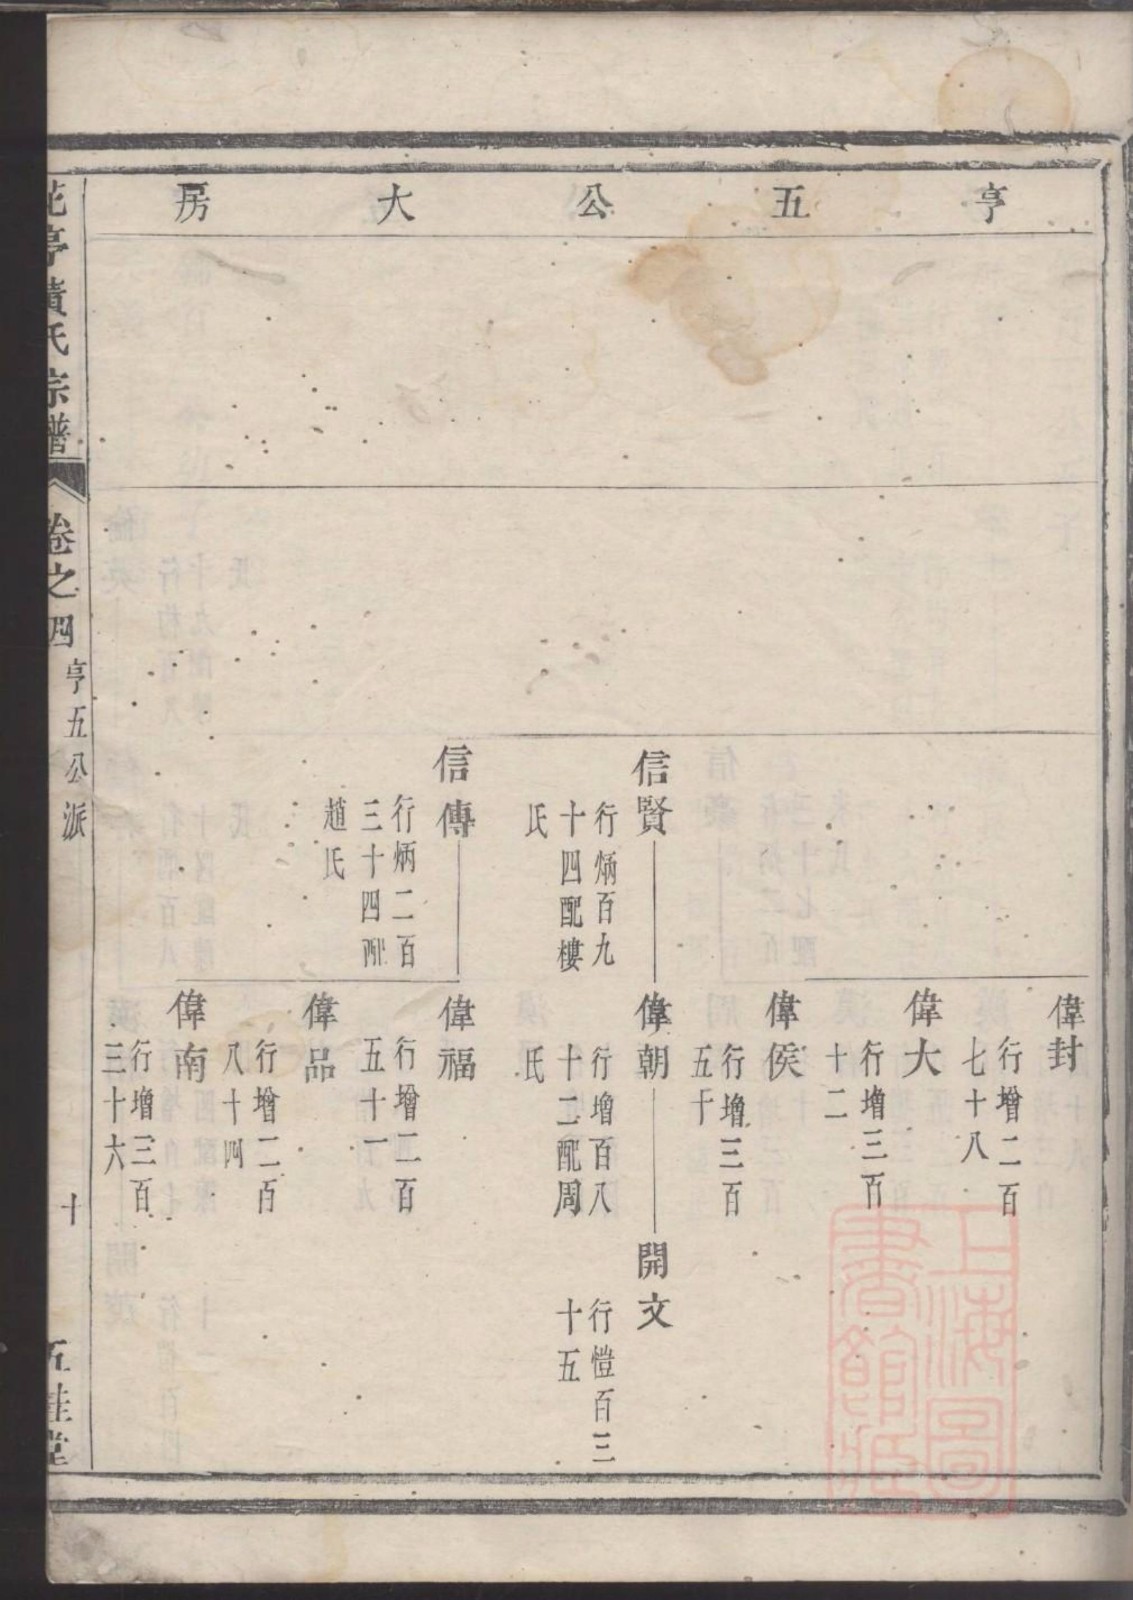 亨五公大房
偉封
行增二百
七十八
偉大
行增三百
十二
偉侯
行增三百
五十
信賢
行炳百九
十四配樓
氏
偉朝
行增百八
十二配周
氏
開文
行愷百三
十五
信傳
行炳二百
三十四配
趙氏
偉福
行增二百
五十一
偉品
行增二百
八十四
偉南
行增三百
三十六
花亭黃氏宗譜
卷之四
亨五公派
十
五桂堂
上海圖書館藏